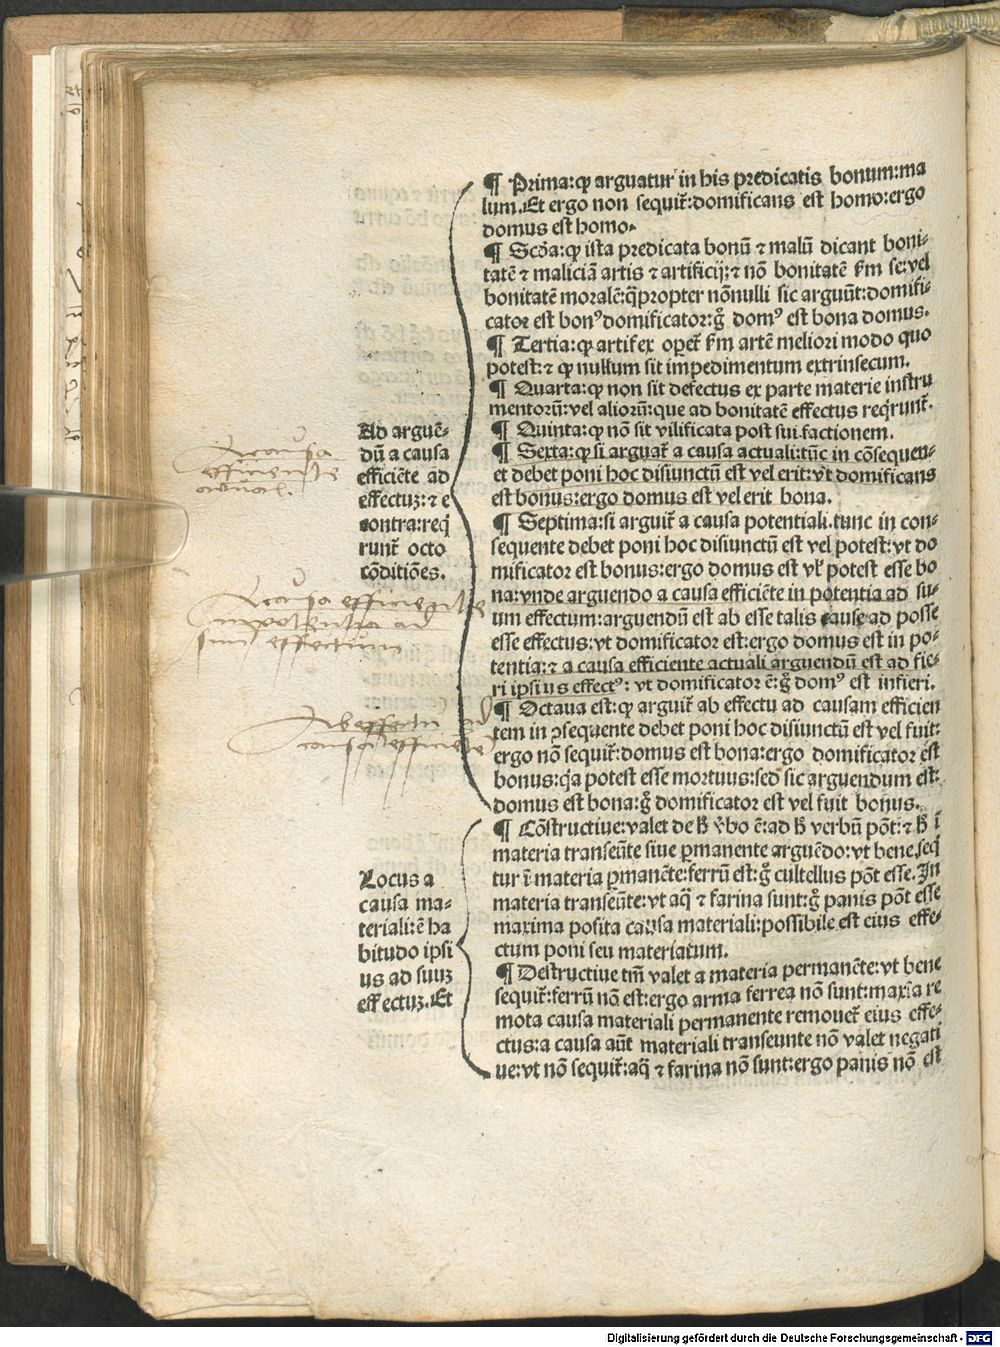 ¶ Prima:ꝙ arguatur in his predicatis bonum:ma
lum.Et ergo non sequit̃:domificans est homo:ergo
domus est homo.
¶ Scd̃a:ꝙ ista predicata bonũ ⁊ malũ dicant boni⸗
tatẽ ⁊ maliciã artis ⁊ artificij:⁊ nõ bonitatẽ ẜm se:vel
bonitatẽ moralẽ:q̃propter nõnulli sic arguũt:domifi⸗
cator est bonꝰ domificator:g̊ domꝰ est bona domus.
¶ Tertia:ꝙ artifex oꝑet̃ ẜm artẽ meliori modo quo
potest:⁊ ꝙ nullum sit impedimentum extrinsecum.
¶ Quarta:ꝙ non sit defectus ex parte materie instru
mentorũ:vel aliorũ:que ad bonitatẽ effectus req̃runt̃.
¶ Quinta:ꝙ nõ sit vilificata post sui factionem.
¶ Sexta:ꝙ si arguat̃ a causa actuali:tũc in cõsequen⸗
et debet poni hoc disiunctũ est vel erit:vt domificans
est bonus:ergo domus est vel erit bona.
Ad arguẽ⸗
dũ a causa
efficiẽte ad
effectuꝫ:⁊ e
contra:req̃
runt̃ octo
cõditiões.
¶ Septima:si arguit̃ a causa potentiali.tunc in con⸗
sequente debet poni hoc disiunctũ est vel potest:vt do
mificator est bonus:ergo domus est vl̃ potest esse bo
na:vnde arguendo a causa efficiẽte in potentia ad su⸗
um effectum:arguendũ est ab esse talis cause ad posse
esse effectus:vt domificator est:ergo domus est in po⸗
tentia:⁊ a causa efficiente actuali arguendũ est ad fie⸗
ri ipsius effectꝰ: vt domificator ẽ:g̊ domꝰ est infieri.
¶ Octaua est:ꝙ arguit̃ ab effectu ad causam efficien
tem in ꝯsequente debet poni hoc disiunctũ est vel fuit:
ergo nõ sequit̃:domus est bona:ergo domificator est
bonus:q̃a potest esse mortuus:sed sic arguendum est:
domus est bona:g̊ domificator est vel fuit bonus.
a causa
efficiente
a causa efficiente
in potentia ad
suum effectum
Ab effectu ad
causã efficiẽtẽ
Locus a
causa ma⸗
teriali:ẽ ha
bitudo ipsi
us ad suuꝫ
effectuꝫ.Et
¶ Cõstructiue:valet de h̊ v̓bo ẽ:ad h̊ verbũ põt:⁊ h̊ ĩ
materia transeũte siue ꝑmanente arguẽdo:vt bene seq̃
tur ĩ materia ꝑmanẽte:ferrũ est:g̊ cultellus põt esse.In
materia transeũte:vt aq̃ ⁊ farina sunt:g̊ panis põt esse
maxima posita causa materiali:possibile est eius effe⸗
ctum poni seu materiatum.
¶ Destructiue tm̃ valet a materia permanẽte:vt bene
sequit̃:ferrũ nõ est:ergo arma ferrea nõ sunt:maxĩa re
mota causa materiali permanente remouet̃ eius effe⸗
ctus:a causa aũt materiali transeunte nõ valet negati
ue:vt nõ sequit̃:aq̃ ⁊ farina nõ sunt:ergo panis nõ est
Digitalisierung gefördert durch die Deutsche Forschungsgemeinschaft - DFG